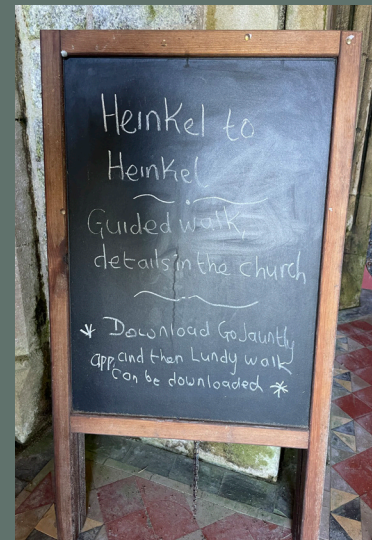 Heinkel to
Heinkel
Guided walk,
details in the church
* Download GoJauntly
app, and then Lundy walk
can be downloaded *